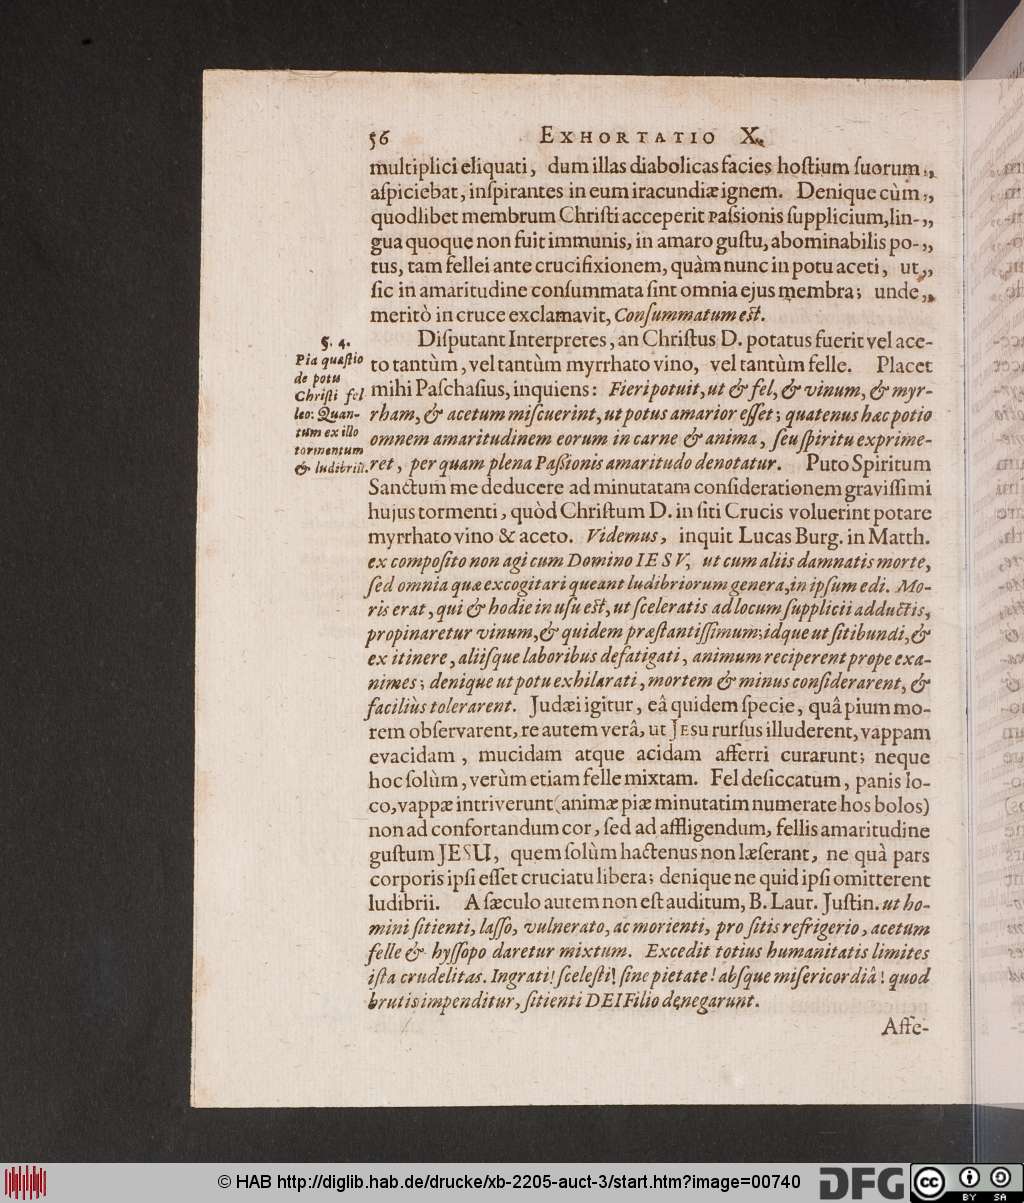 56 EXHORTATIO X.
multiplici eliquati, dum illas diabolicas facies hoſtium ſuorum „
aſpiciebat, inſpirantes in eum iracundiæ ignem. Denique cùm „
quodlibet membrum Chriſti acceperit paſsionis ſupplicium, lin- „
gua quoque non fuit immunis, in amaro guſtu, abominabilis po- „
tus, tam fellei ante crucifixionem, quàm nunc in potu aceti, ut „
ſic in amaritudine conſummata ſint omnia ejus membra; unde „
meritò in cruce exclamavit, Conſummatum eſt.
§. 4.
Pia quæſtio
de potu
Chriſti fel
leo: Quan-
tum ex illo
tormentum
& ludibrii.
Diſputant Interpretes, an Chriſtus D. potatus fuerit vel ace-
to tantùm, vel tantùm myrrhato vino, vel tantùm felle. Placet
mihi Paſchaſius, inquiens: Fieri potuit, ut & fel, & vinum, & myr-
rham, & acetum miſcuerint, ut potus amarior eſſet; quatenus hæc potio
omnem amaritudinem eorum in carne & anima, ſeu ſpiritu exprime-
ret, per quam plena Paſsionis amaritudo denotatur. Puto Spiritum
Sanctum me deducere ad minutatam conſiderationem graviſſimi
hujus tormenti, quòd Chriſtum D. in ſiti Crucis voluerint potare
myrrhato vino & aceto. Videmus, inquit Lucas Burg. in Matth.
ex compoſito non agi cum Domino IESV, ut cum aliis damnatis morte,
ſed omnia quæ excogitari queant ludibriorum genera, in ipſum edi. Mo-
ris erat, qui & hodie in uſu eſt, ut ſceleratis ad locum ſupplicii adductis,
propinaretur vinum, & quidem præſtantiſſimum; idque ut ſitibundi, &
ex itinere, aliiſque laboribus defatigati, animum reciperent prope exa-
nimes; denique ut potu exhilarati, mortem & minus conſiderarent, &
faciliùs tolerarent. Judæi igitur, eâ quidem ſpecie, quâ pium mo-
rem obſervarent, re autem verâ, ut JESU rurſus illuderent, vappam
evacidam, mucidam atque acidam afferri curarunt; neque
hoc ſolùm, verùm etiam felle mixtam. Fel deſiccatum, panis lo-
co, vappæ intriverunt (animæ piæ minutatim numerate hos bolos)
non ad confortandum cor, ſed ad affligendum, fellis amaritudine
guſtum JESU, quem ſolùm hactenus non læſerant, ne quà pars
corporis ipſi eſſet cruciatu libera; denique ne quid ipſi omitterent
ludibrii. A ſæculo autem non eſt auditum, B. Laur. Juſtin. ut ho-
mini ſitienti, laſſo, vulnerato, ac morienti, pro ſitis refrigerio, acetum
felle & hyſſopo daretur mixtum. Excedit totius humanitatis limites
iſta crudelitas. Ingrati! ſceleſti! ſine pietate! abſque miſericordiâ! quod
brutis impenditur, ſitienti DEI Filio denegarunt.
Affe-
© HAB http://diglib.hab.de/drucke/xb-2205-auct-3/start.htm?image=00740
DFG
cc BY SA